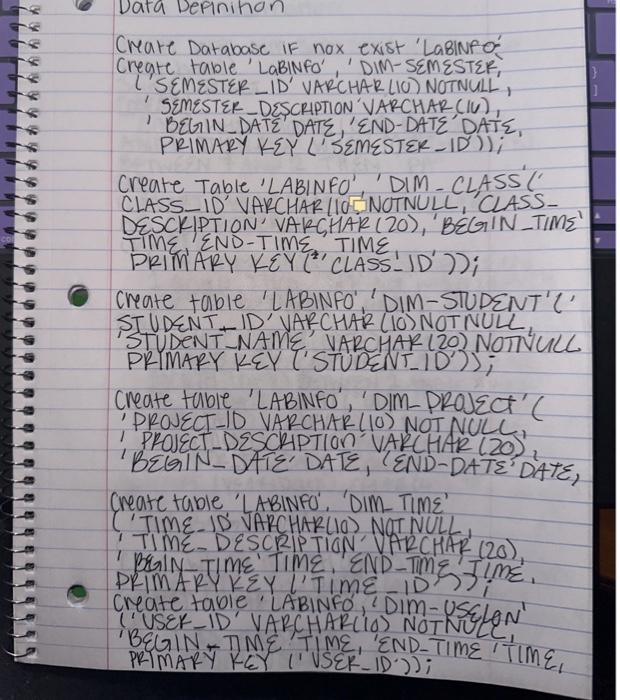 Data Definition
Create Database IF nox exist 'LaBINFO'
Create table 'LaBINFO', 'DIM-SEMESTER,
( SEMESTER_ID' VARCHAR(10) NOTNULL,
' SEMESTER_DESCRIPTION' VARCHAR(10),
' BEGIN_DATE' DATE, 'END-DATE' DATE,
PRIMARY KEY ('SEMESTER_ID'));
Create Table 'LABINFO', 'DIM_CLASS'('
CLASS_ID' VARCHAR(10 NOTNULL, 'CLASS-
DESCRIPTION' VARCHAR(20), 'BEGIN_TIME'
TIME, 'END-TIME, TIME
PRIMARY KEY ('CLASS_ID'));
Create table 'LABINFO', 'DIM-STUDENT'('
STUDENT_ID' VARCHAR(10) NOTNULL,
'STUDENT_NAME' VARCHAR(20) NOTNULL
PRIMARY KEY ('STUDENT_ID'));
Create table 'LABINFO', 'DIM_PROJECT'(
'PROJECT_ID VARCHAR(10) NOT NULL,
' PROJECT_DESCRIPTION' VARCHAR(20),
'BEGIN_DATE' DATE, 'END-DATE' DATE,
Create table 'LABINFO', 'DIM_TIME'
('TIME_ID VARCHAR(10) NOT NULL,
' TIME_DESCRIPTION' VARCHAR(20),
' BEGIN_TIME TIME, 'END_TIME' TIME,
PRIMARY KEY ('TIME_ID'));
Create table 'LABINFO, 'DIM-
('USER_ID' VARCHAR(10) NOTNULL,
'BEGIN_TIME' TIME, 'END_TIME' TIME,
PRIMARY KEY ('USER_ID'));